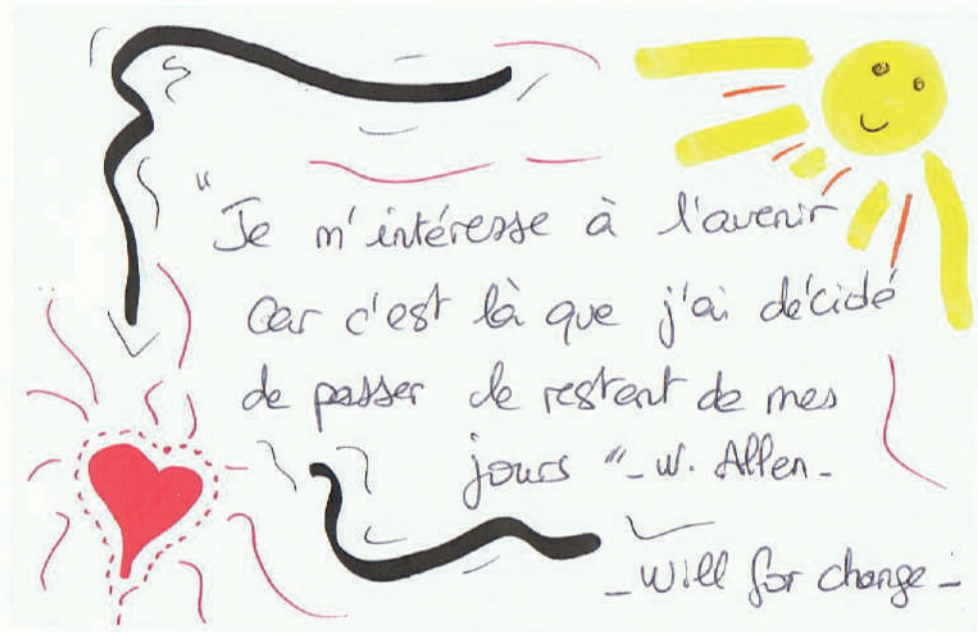 "Je m'intéresse à l'avenir
car c'est là que j'ai décidé
de passer le restant de mes
jours "_ W. Allen _
_ Will for change _